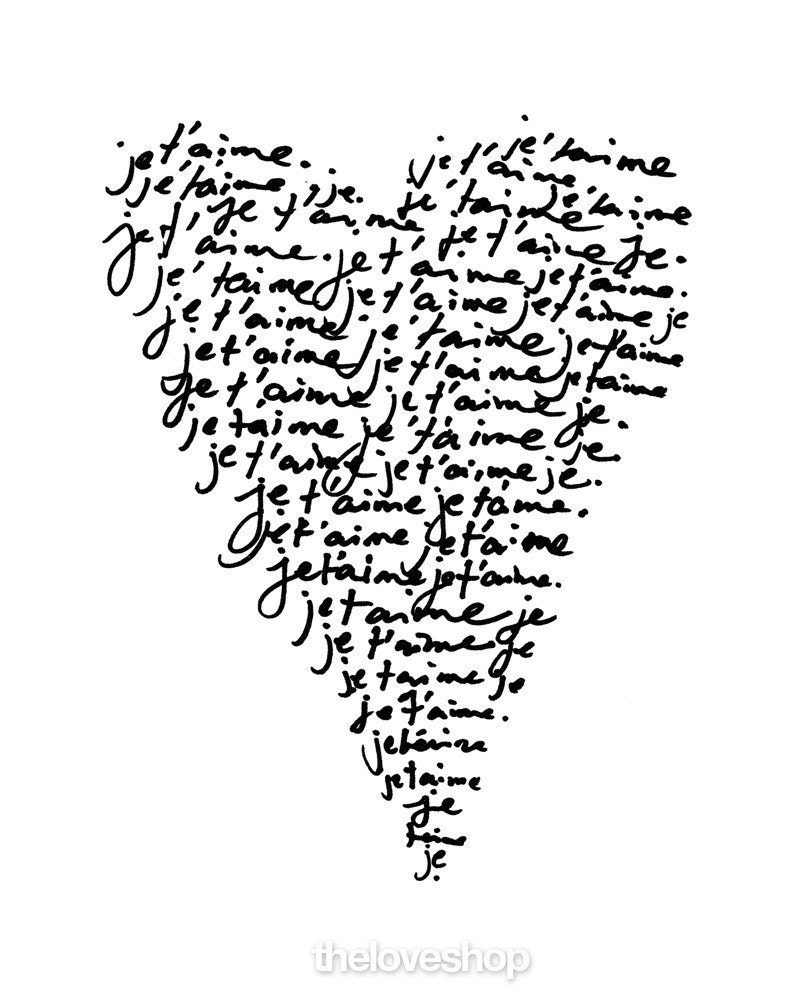 je t'aime. je t'aime
je t'aime
je t'aime, je. je t'aime je t'aime
je t'
je t'aime je t'aime je.
aime. je t'aime je t'aime.
je t'aime je t'aime je t'aime je
je t'aime je t'aime je t'aime
je t'aime je t'aime je taime
je t'aime je t'aime je.
je t'aime je t'aime je.
je t'aime je t'aime je.
je t'aime je t'aime.
je t'aime je t'aime
je t'aime je t'aime.
je t aime je
je t'aime je
je t aime je
je t'aime.
je taime
je
taime
je.
theloveshop